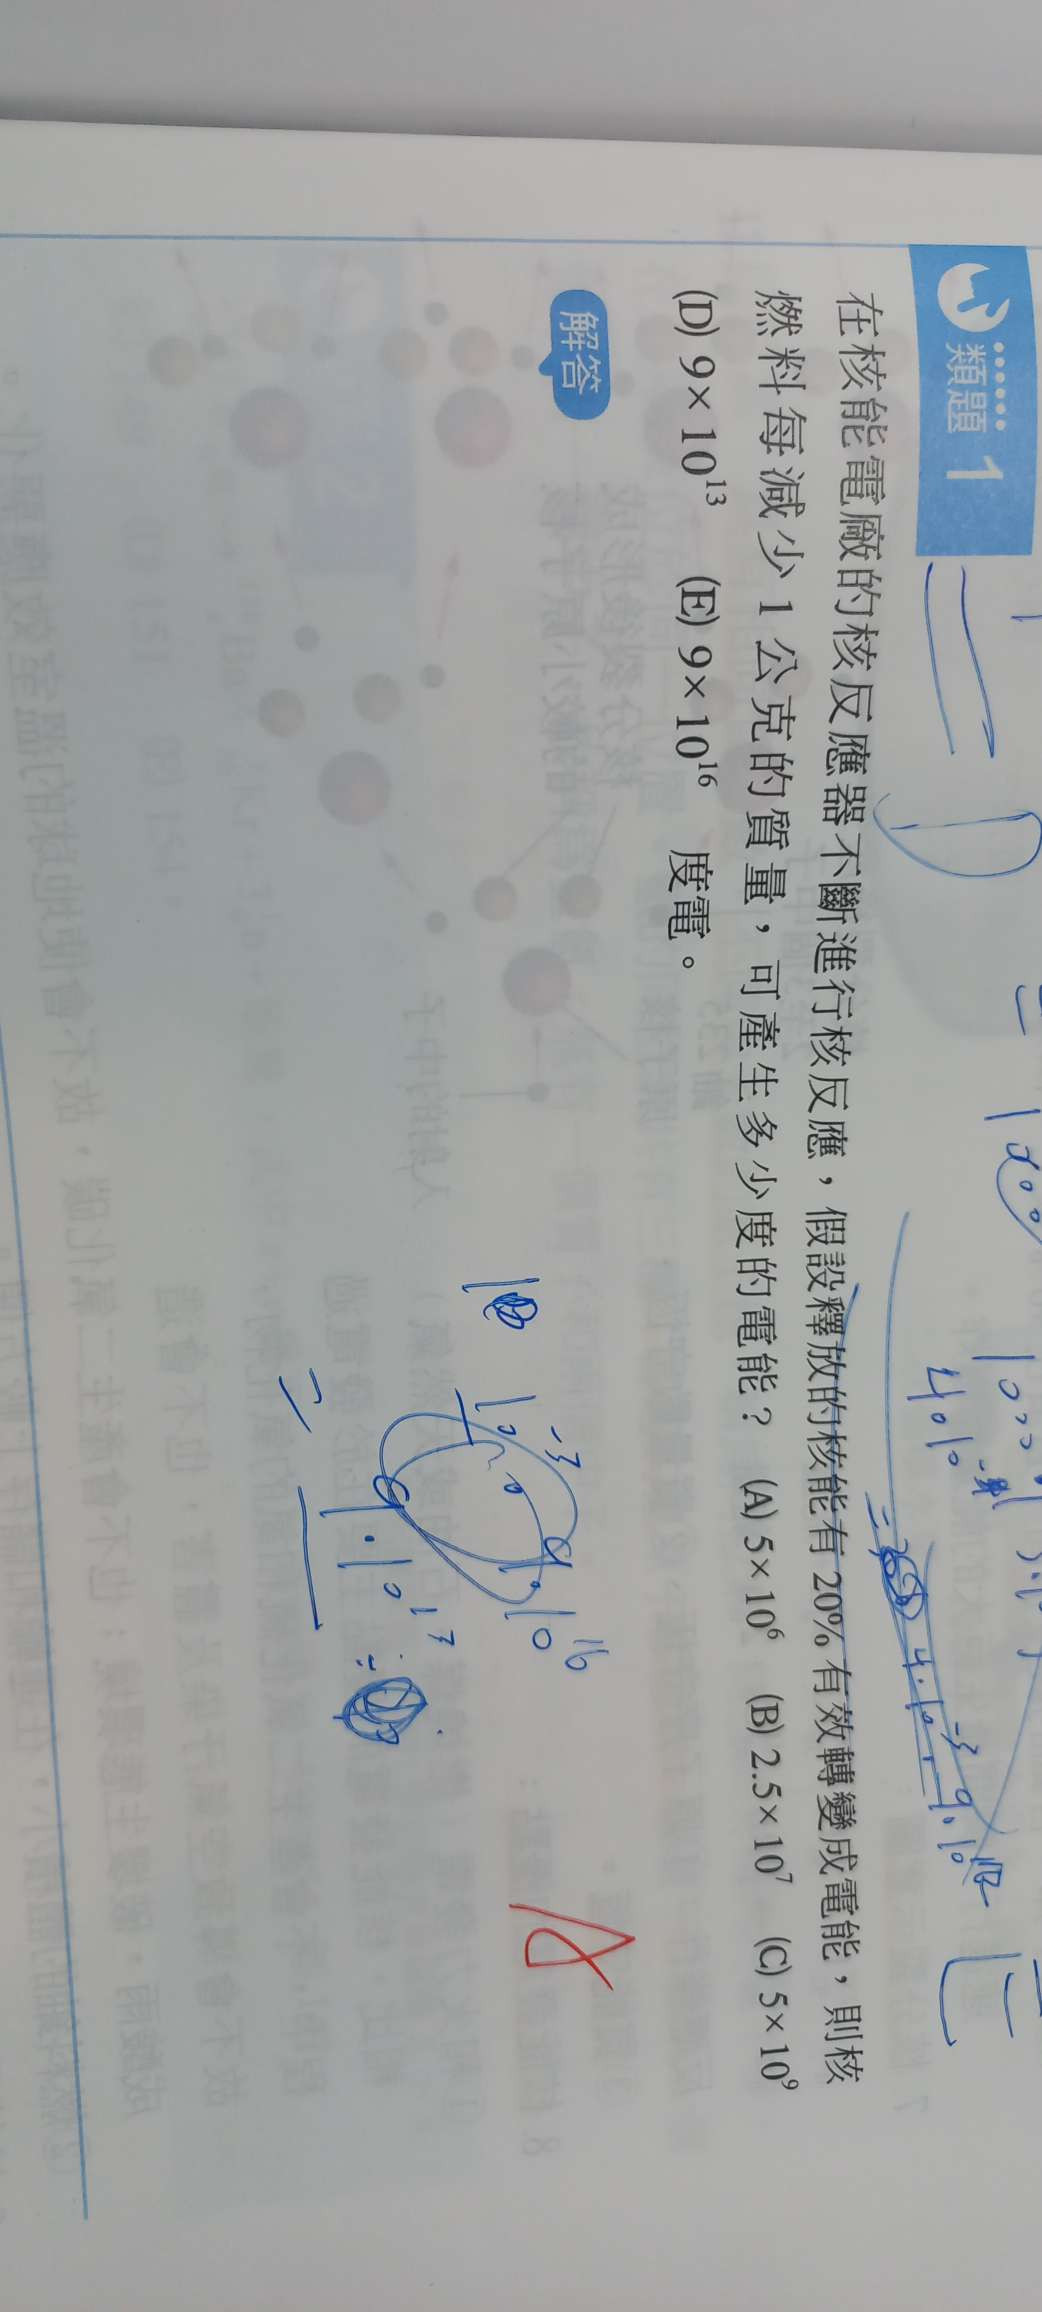 類題 1
在核能電廠的核反應器不斷進行核反應，假設釋放的核能有 20% 有效轉變成電能，則核
燃料每減少 1 公克的質量，可產生多少度的電能？ (A) 5×10⁶ (B) 2.5×10⁷ (C) 5×10⁹
(D) 9×10¹³ (E) 9×10¹⁶ 度電。
解答
10⁻³ 9·10¹⁶
= 9·10¹³
A